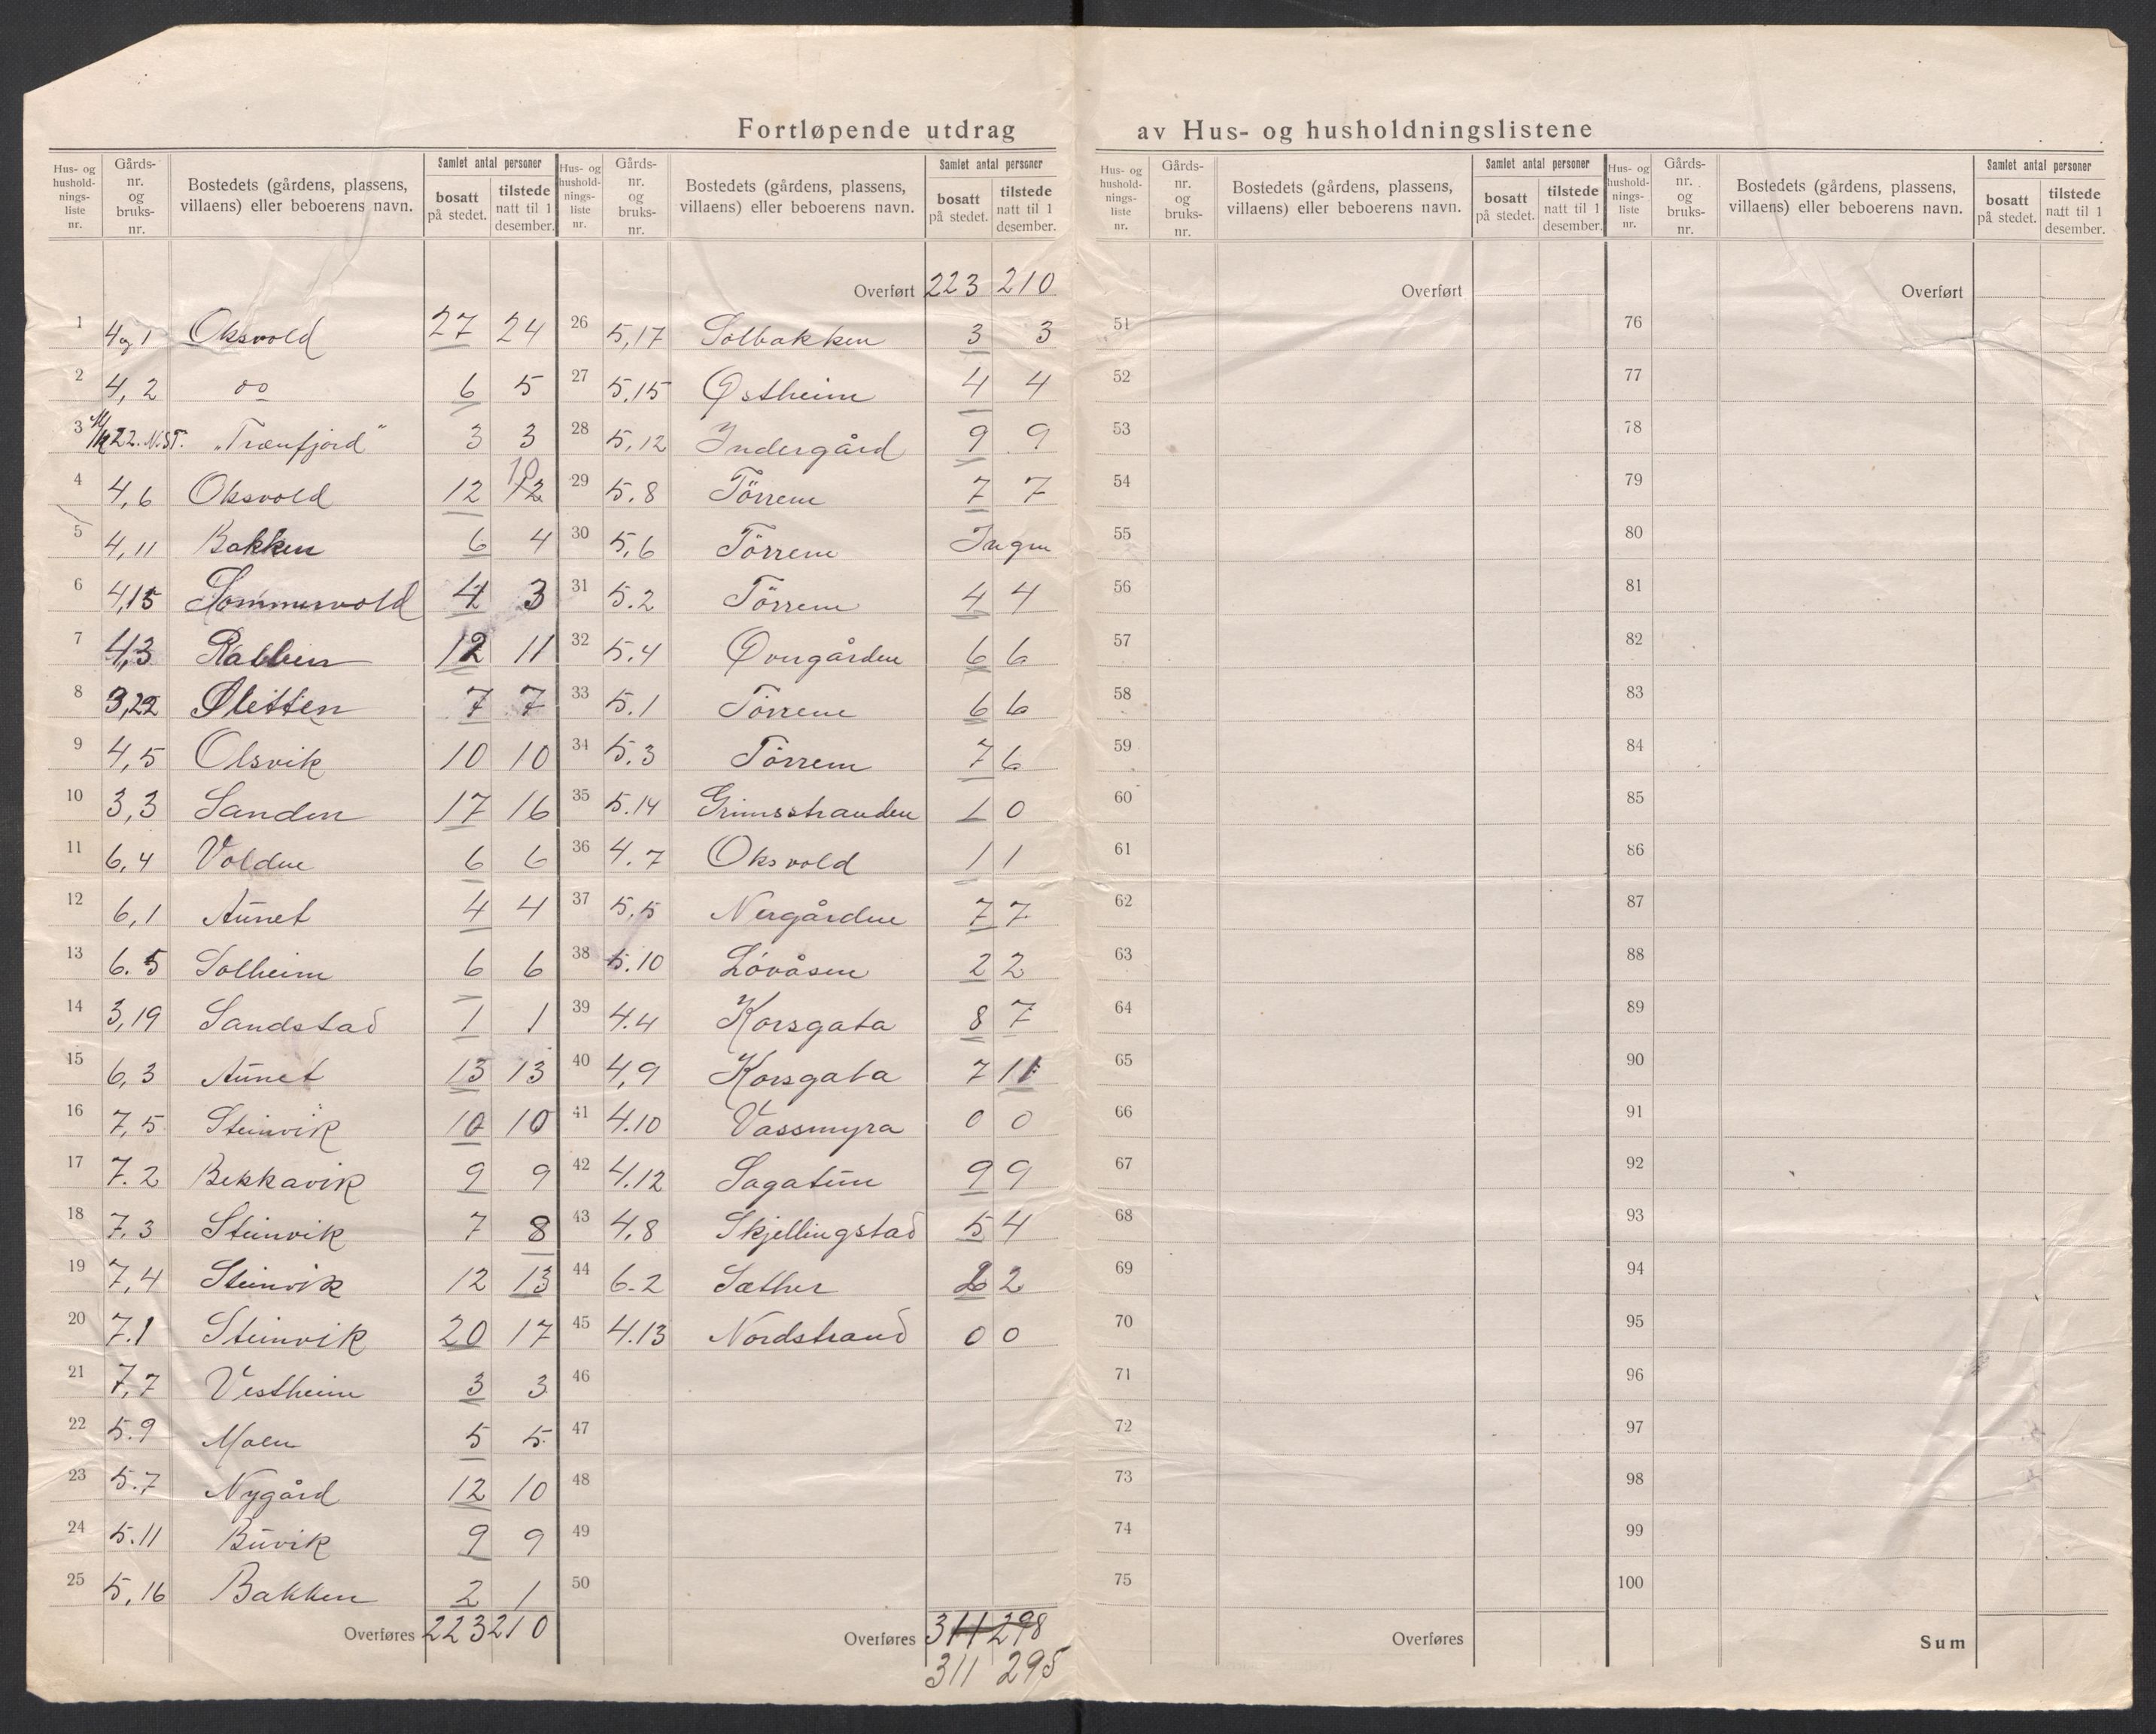 Fortløpende utdrag av Hus- og husholdningslistene
Hus- og hushold-nings-liste nr. | Gårds-nr. og bruks-nr. | Bostedets (gårdens, plassens, villaens) eller beboerens navn. | Samlet antal personer | bosatt på stedet. | tilstede natt til 1 desember.
1 4,1 Oksvold 27 24
2 4, 2 do 6 5
3 22. N.ST. "Trænfjord" 3 3
4 4,6 Oksvold 12 12 10
5 4,11 Bakken 6 4
6 4,15 Sommervold 4 3
7 4,3 Rabben 12 11
8 3,22 Sletten 7 7
9 4,5 Olsvik 10 10
10 3,3 Sanden 17 16
11 6,4 Volden 6 6
12 6,1 Aunet 4 4
13 6.5 Solheim 6 6
14 3,19 Sandstad 1 1
15 6,3 Aunet 13 13
16 7,5 Steinvik 10 10
17 7.2 Bekkavik 9 9
18 7.3 Steinvik 7 8
19 7,4 Steinvik 12 13
20 7.1 Steinvik 20 17
21 7,7 Vestheim 3 3
22 5.9 Moen 5 5
23 5.7 Nygård 12 10
24 5.11 Buvik 9 9
25 5,16 Bakken 2 1
Overføres 223 210
Hus- og hushold-nings-liste nr. | Gårds-nr. og bruks-nr. | Bostedets (gårdens, plassens, villaens) eller beboerens navn. | Samlet antal personer | bosatt på stedet. | tilstede natt til 1 desember.
Overført 223 210
26 5,17 Solbakken 3 3
27 5.15 Østheim 4 4
28 5.12 Indergård 9 9
29 5.8 Törrem 7 7
30 5,6 Törrem Ingen
31 5.2 Törrem 4 4
32 5.4 Øvergården 6 6
33 5.1 Törrem 6 6
34 5.3 Törrem 7 6
35 5.14 Grimsstranden 1 0
36 4.7 Oksvold 1 1
37 5,5 Nergården 7 7
38 5.10 Lóvåsen 2 2
39 4.4 Korsgata 8 7
40 4,9 Korsgata 7 11
41 4.10 Vassmyra 0 0
42 4.12 Sagatun 9 9
43 4,8 Skjellingstad 5 4
44 6-2 Sæther 2
45 4.13 Nordstrand 0 0
46
47
48
49
50
Overføres 311 298
311 295
Hus- og hushold-nings-liste nr. | Gårds-nr. og bruks-nr. | Bostedets (gårdens, plassens, villaens) eller beboerens navn. | Samlet antal personer | bosatt på stedet. | tilstede natt til 1 desember.
Overført
51
52
53
54
55
56
57
58
59
60
61
62
63
64
65
66
67
68
69
70
71
72
73
74
75
Overføres
Hus- og hushold-nings-liste nr. | Gårds-nr. og bruks-nr. | Bostedets (gårdens, plassens, villaens) eller beboerens navn. | Samlet antal personer | bosatt på stedet. | tilstede natt til 1 desember.
Overført
76
77
78
79
80
81
82
83
84
85
86
87
88
89
90
91
92
93
94
95
96
97
98
99
100
Sum